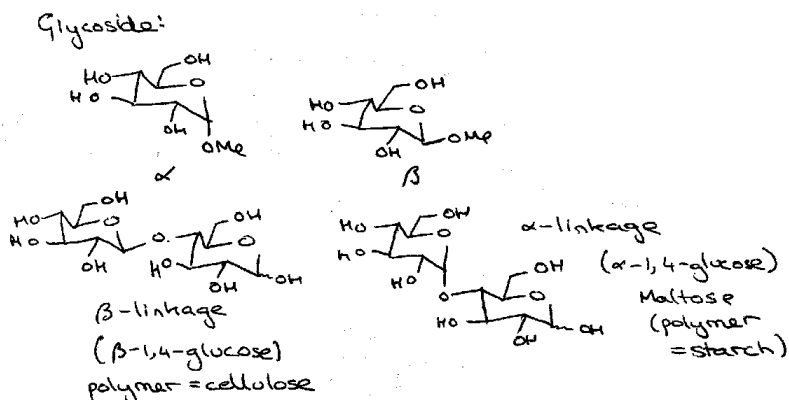 Glycoside:
OH
HO
O
HO
OH
OMe
α
OH
HO
O
HO
OH
OMe
β
OH
HO
O
HO
OH
O
OH
O
HO
OH
OH
β-linkage
(β-1,4-glucose)
polymer = cellulose
OH
HO
O
HO
HO
O
OH
O
HO
OH
OH
α-linkage
(α-1,4-glucose)
Maltose
(polymer
= starch)